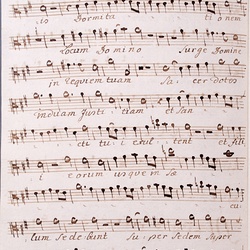 io Dormita ti onem
Locum Domino Surge Domine
in requiem tuam Sa cerdotes
induan Justi tiam et San
cti tu i exul tent et fili
i eorum usque in Sæ cu
lum Sede bunt Su per Sedem Super